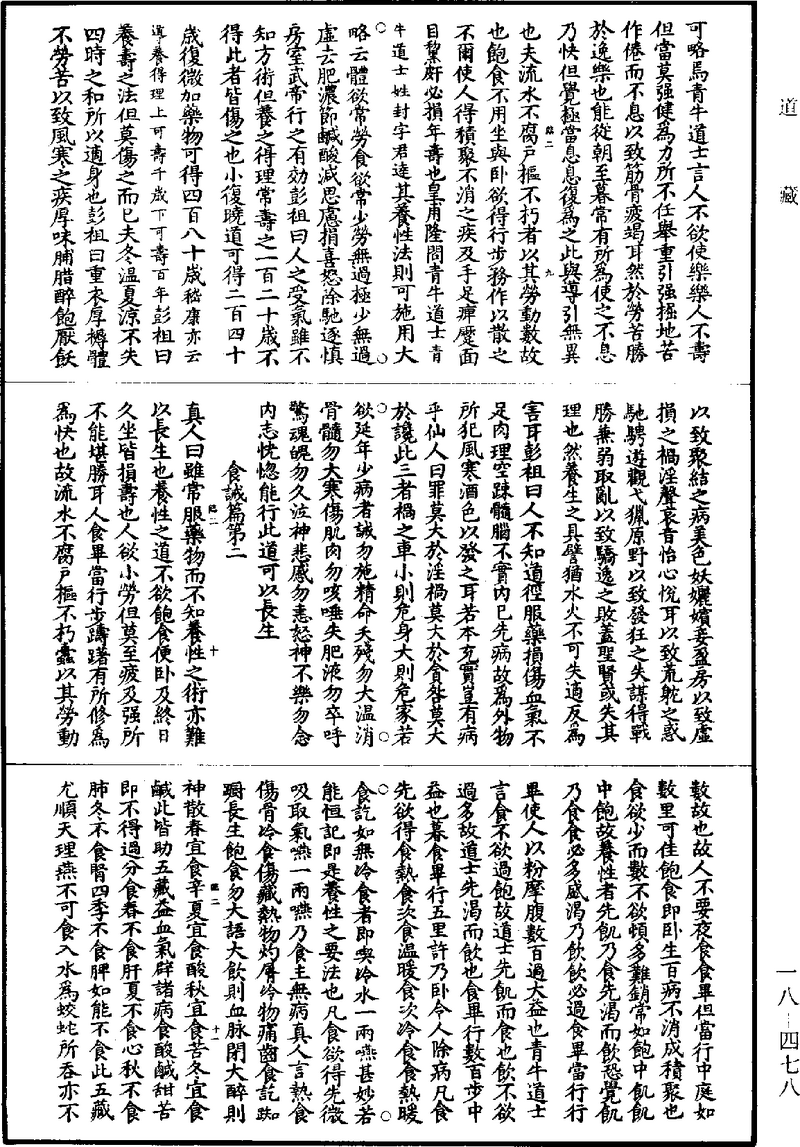 道藏
可略焉青牛道士言人不欲使樂樂人不壽
但當莫强健爲力所不任舉重引强掘地苦
作倦而不息以致筋骨疲竭耳然於勞苦勝
於逸樂也能從朝至暮常有所爲使之不息
乃快但覺極當息息復爲之此與導引無異
也夫流水不腐戸樞不朽者以其勞動數故
也飽食不用坐與卧欲得行步務作以散之
不爾使人得積聚不消之疾及手足痺蹷面
目黧皯必損年壽也皇甫隆問青牛道士青
牛道士姓封字君逹其養性法則可施用大
略云體欲常勞食欲常少勞無過極少無過
虛去肥濃節鹹酸減思慮捐喜怒除馳逐慎
房室武帝行之有効彭祖曰人之受氣雖不
知方術但養之得理常壽之一百二十歳不
得此者皆傷之也小復曉道可得二百四十
歳復微加藥物可得四百八十歳嵇康亦云
導養得理上可壽千歳下可壽百年彭祖曰
養壽之法但莫傷之而已夫冬温夏涼不失
四時之和所以適身也彭祖曰重衣厚褥體
不勞苦以致風寒之疾厚味脯腊醉飽厭飫
臨二
九
以致聚結之病美色妖孋嬪妾盈房以致虛
損之禍淫聲哀音怡心悅耳以致荒躭之惑
馳騁遊觀弋獵原野以致發狂之失謀得戰
勝兼弱取亂以致驕逸之敗蓋聖賢或失其
理也然養生之具譬猶水火不可失適反爲
害耳彭祖曰人不知道徑服藥損傷血氣不
足肉理空踈髓腦不實內已先病故爲外物
所犯風寒酒色以發之耳若本充實豈有病
乎仙人曰罪莫大於淫禍莫大於貪咎莫大
於讒此三者禍之車小則危身大則危家若
欲延年少病者誡勿施精命夭殘勿大温消
骨髓勿大寒傷肌肉勿咳唾失肥液勿卒呼
驚魂魄勿久泣神悲慼勿恚怒神不樂勿念
內志恍惚能行此道可以長生
食誡篇第二
真人曰雖常服藥物而不知養性之術亦難
以長生也養性之道不欲飽食便卧及終日
久坐皆損壽也人欲小勞但莫至疲及强所
不能堪勝耳人食畢當行步躊躇有所修爲
爲快也故流水不腐戸樞不朽蠹以其勞動
臨二
十
數故也故人不要夜食食畢但當行中庭如
數里可佳飽食即卧生百病不消成積聚也
食欲少而數不欲頓多難銷常如飽中飢飢
中飽故養性者先飢乃食先渴而飲恐覺飢
乃食食必多盛渴乃飲飲必過食畢當行行
畢使人以粉摩腹數百過大益也青牛道士
言食不欲過飽故道士先飢而食也飲不欲
過多故道士先渴而飲也食畢行數百步中
益也暮食畢行五里許乃卧令人除病凡食
先欲得食熱食次食温暖食次冷食食熱暖
食訖如無冷食者即喫冷水一兩嚥甚妙若
能恒記即是養性之要法也凡食欲得先微
吸取氣嚥一兩嚥乃食主無病真人言熱食
傷骨冷食傷藏熱物灼脣冷物痛齒食訖踟
蹰長生飽食勿大語大飲則血脉閉大醉則
神散春宜食辛夏宜食酸秋宜食苦冬宜食
鹹此皆助五藏益血氣辟諸病食酸鹹甜苦
即不得過分食春不食肝夏不食心秋不食
肺冬不食腎四季不食脾如能不食此五藏
尤順天理燕不可食入水爲蛟蛇所吞亦不
臨二
十一
一八-四七八